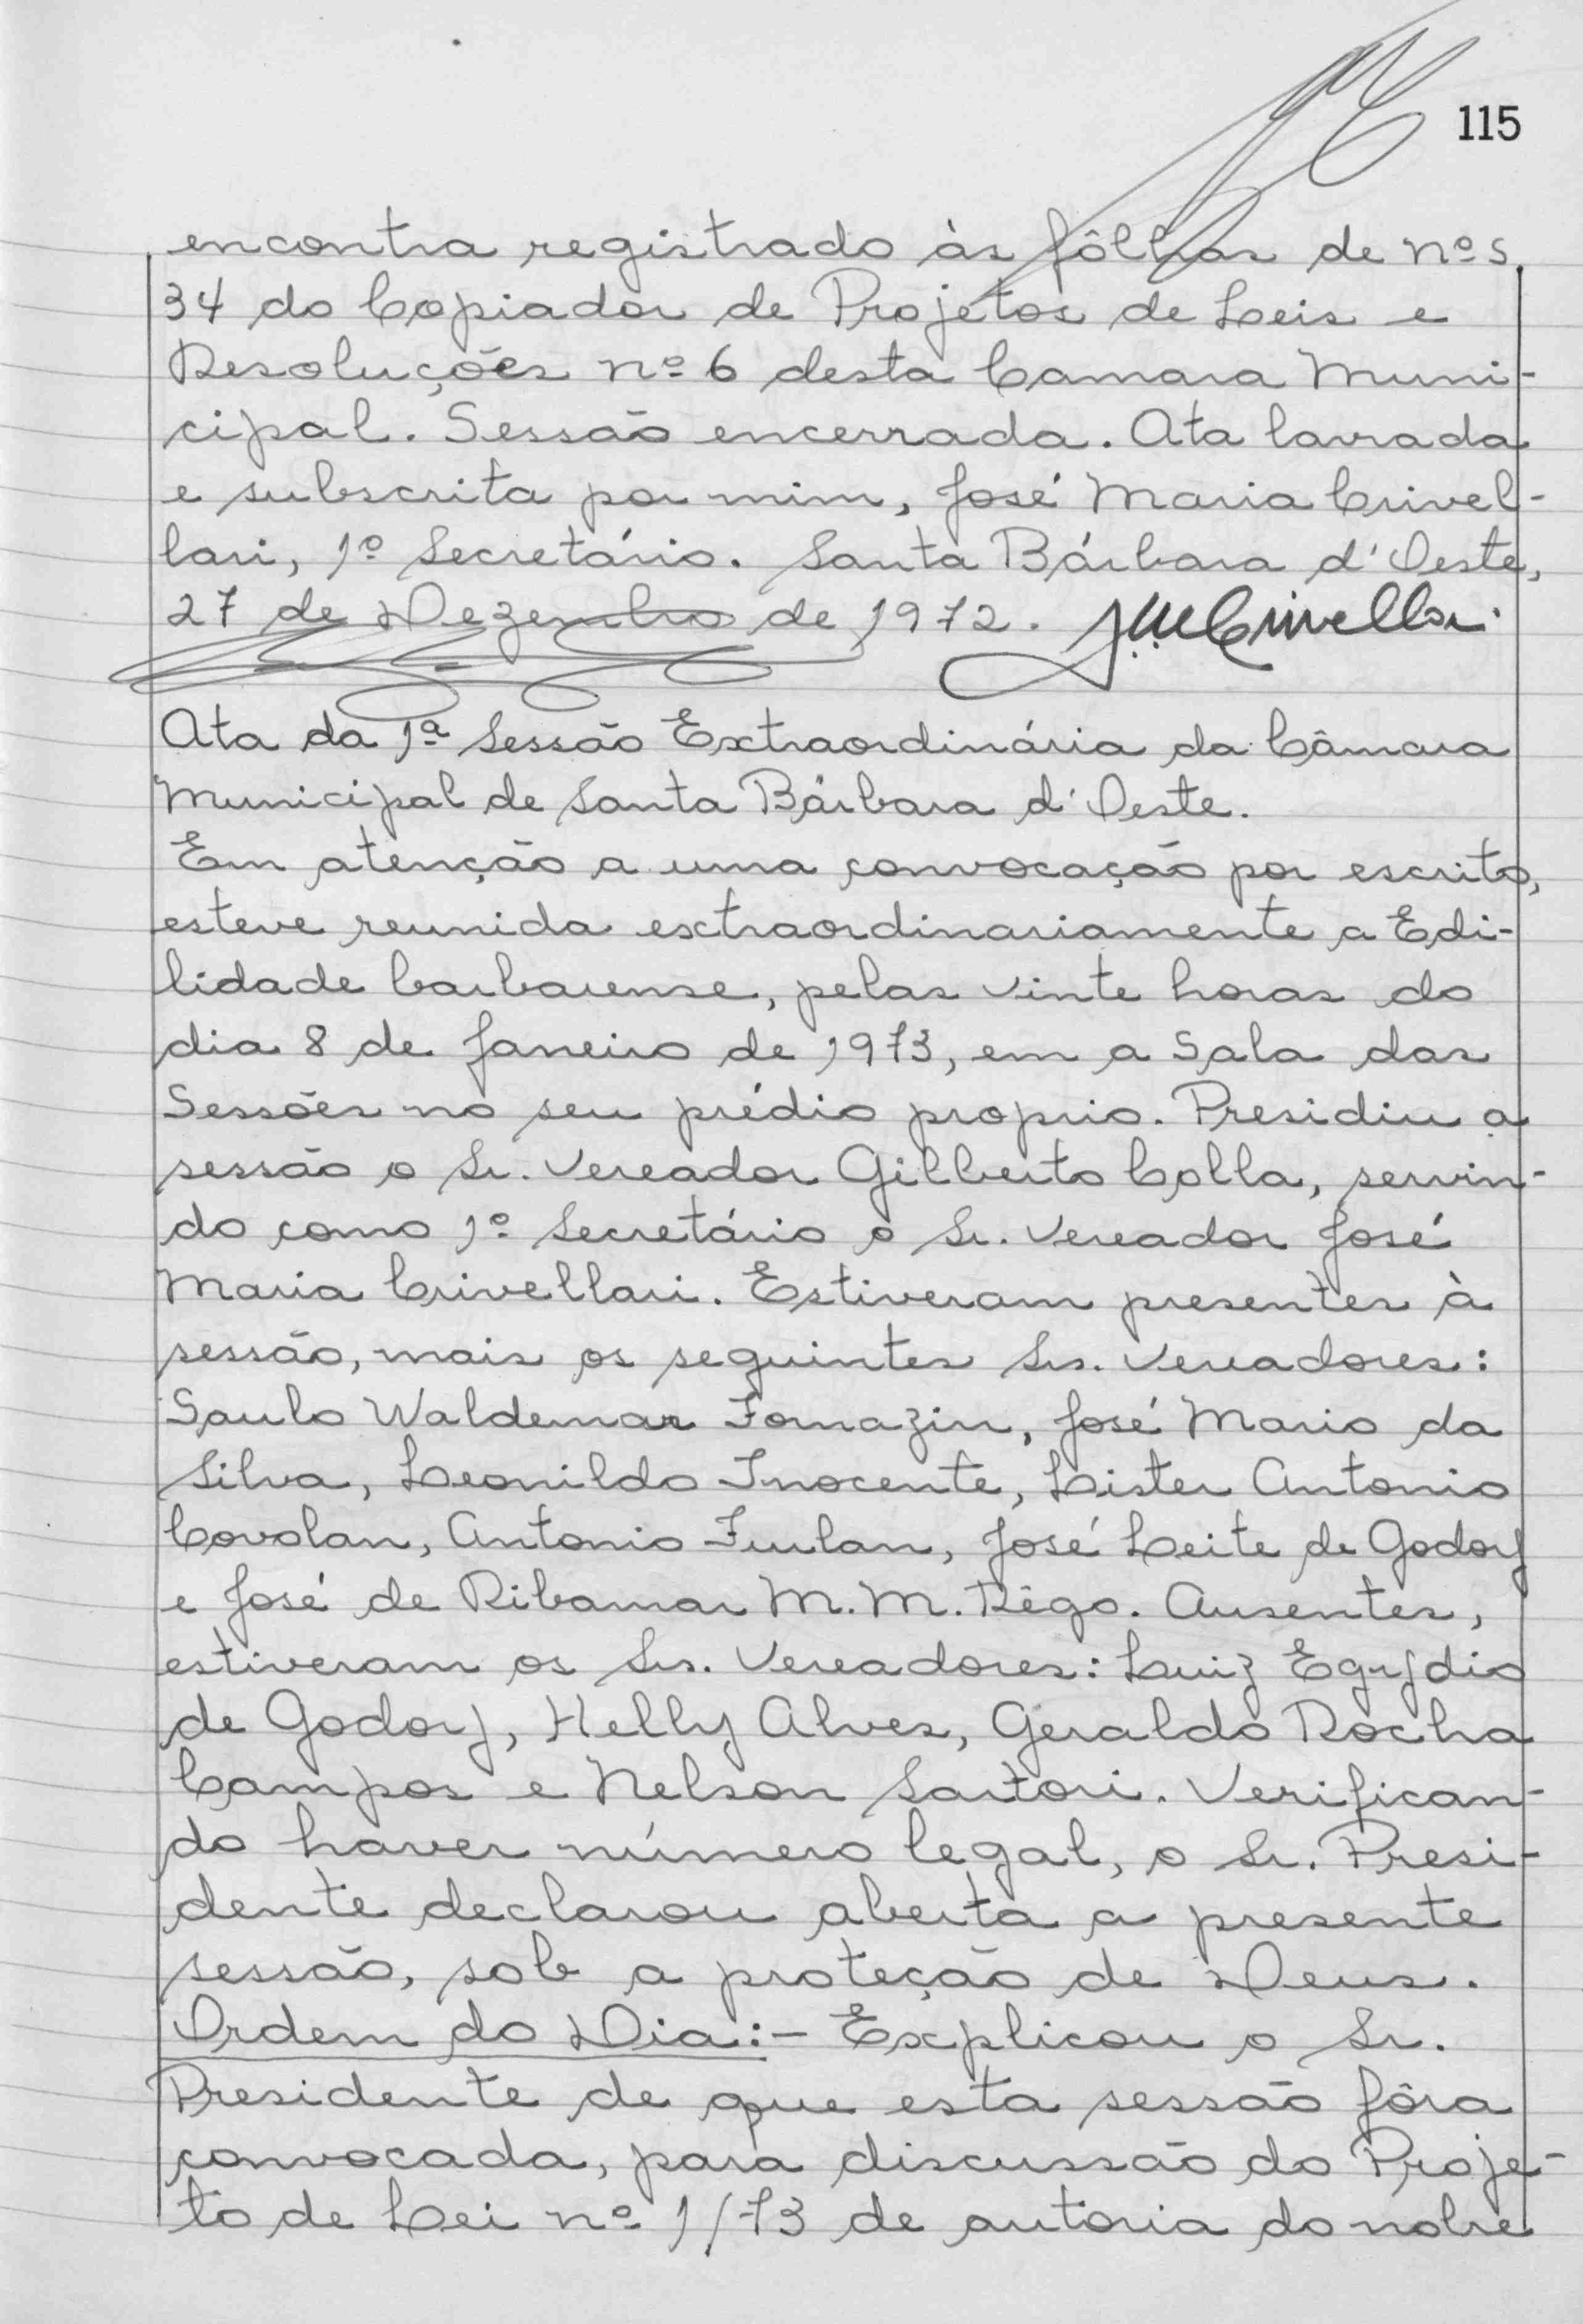 115
encontra registrado às fôlhas de nºs
34 do Copiador de Projetos de Leis e
Resoluções nº 6 desta Camara Muni-
cipal. Sessão encerrada. Ata lavrada
e subscrita por mim, José Maria Crivel-
lari, 1º Secretário. Santa Bárbara d'Oeste,
27 de Dezembro de 1972. J.M.Crivellari
Ata da 1ª Sessão Extraordinária da Câmara
Municipal de Santa Bárbara d'Oeste.
Em atenção a uma convocação por escrito,
esteve reunida extraordinariamente a Edi-
lidade barbarense, pelas vinte horas do
dia 8 de Janeiro de 1973, em a Sala das
Sessões no seu prédio proprio. Presidiu a
sessão o Sr. Vereador Gilberto Colla, servin-
do como 1º Secretário o Sr. Vereador José
Maria Crivellari. Estiveram presentes à
sessão, mais os seguintes Srs. Vereadores:
Saulo Waldemar Fornazin, José Mario da
Silva, Leonildo Inocente, Lister Antonio
Covolan, Antonio Furlan, José Leite de Godoy
e José de Ribamar M.M. Rêgo. Ausentes,
estiveram os Srs. Vereadores: Luiz Egydio
de Godoy, Helly Alves, Geraldo Rocha
Campos e Nelson Sartori. Verifican-
do haver número legal, o Sr. Presi-
dente declarou aberta a presente
sessão, sob a proteção de Deus.
Ordem do Dia:- Explicou o Sr.
Presidente de que esta sessão fôra
convocada, para discussão do Proje-
to de Lei nº 1/73 de autoria do nobre